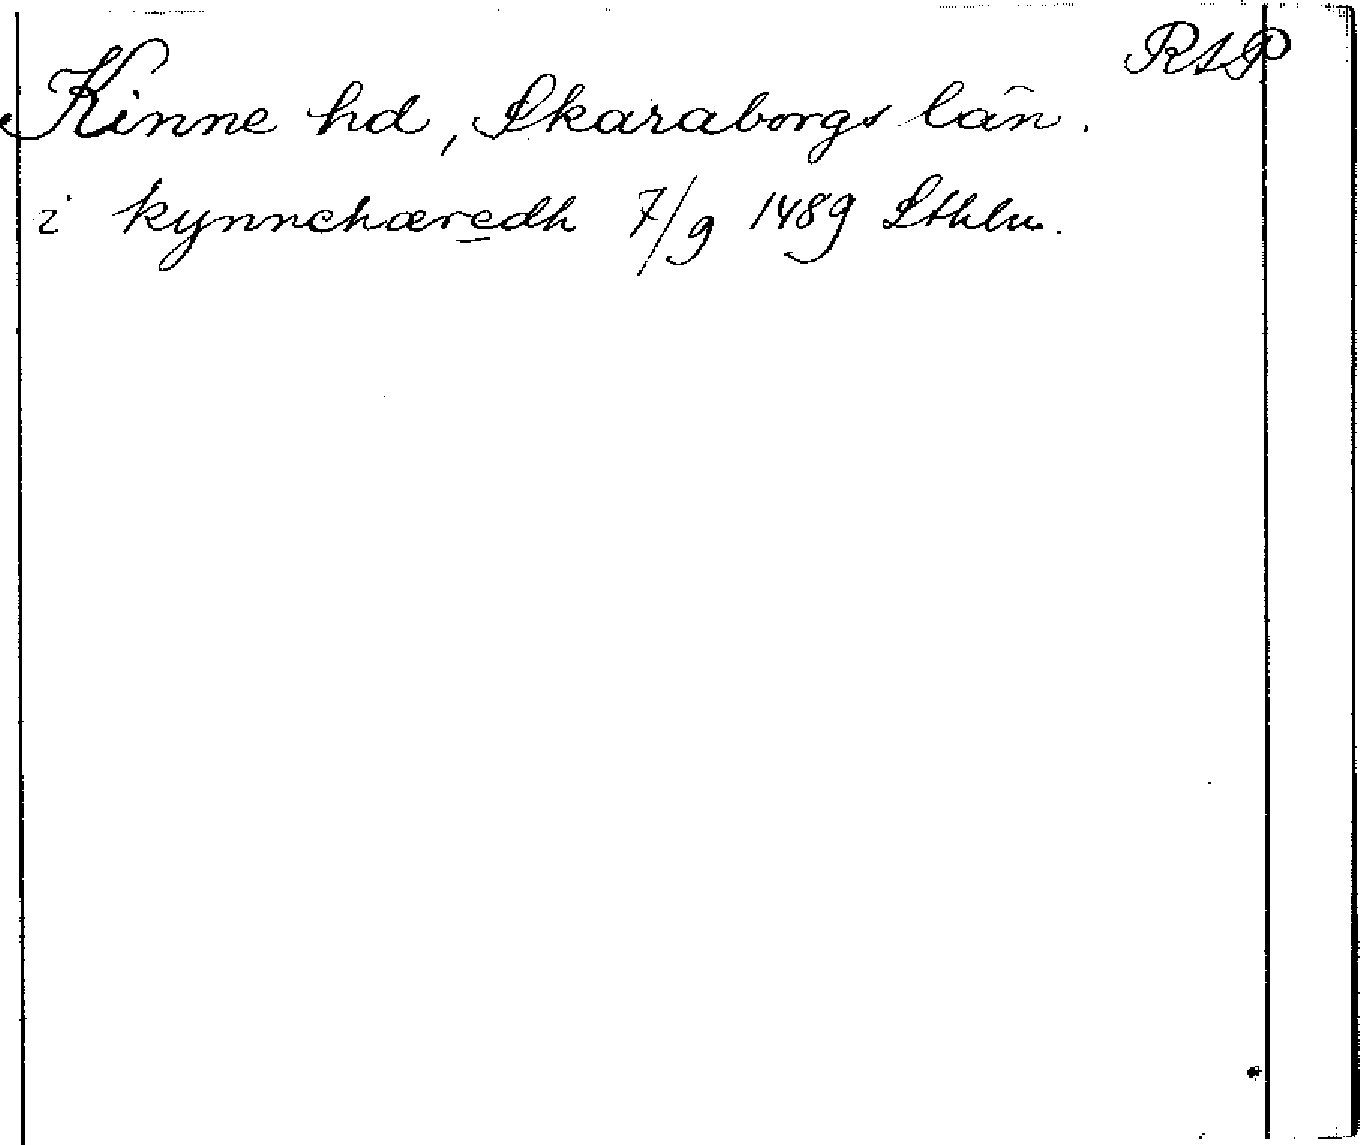 RAP
Kinne hd, Skaraborgs län.
i kynnehæredh 7/9 1489 Sthlm.